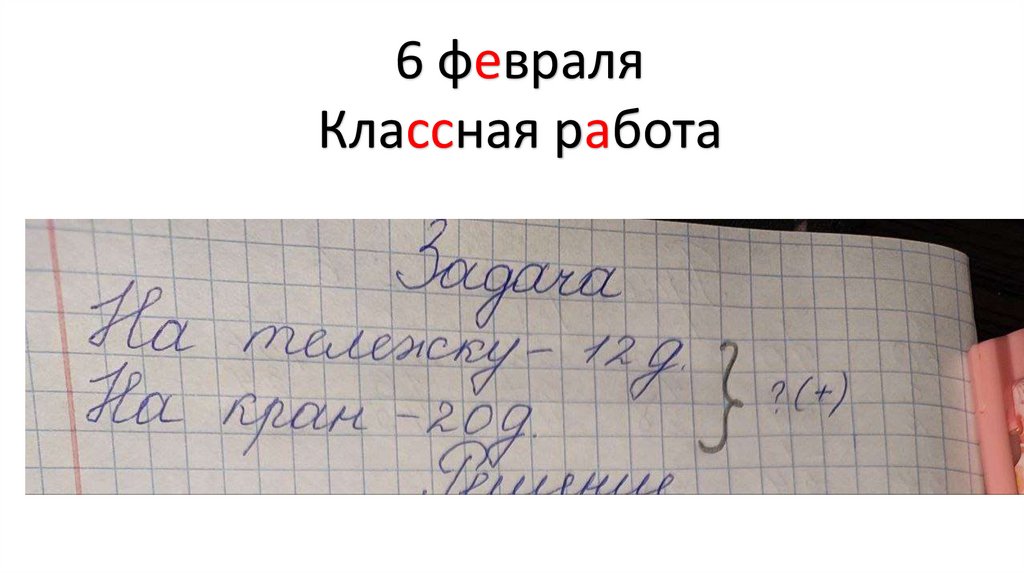 6 февраля
Классная работа
Задача
На тележку – 12 д.
На кран – 20 д. } ?(+)
Решение